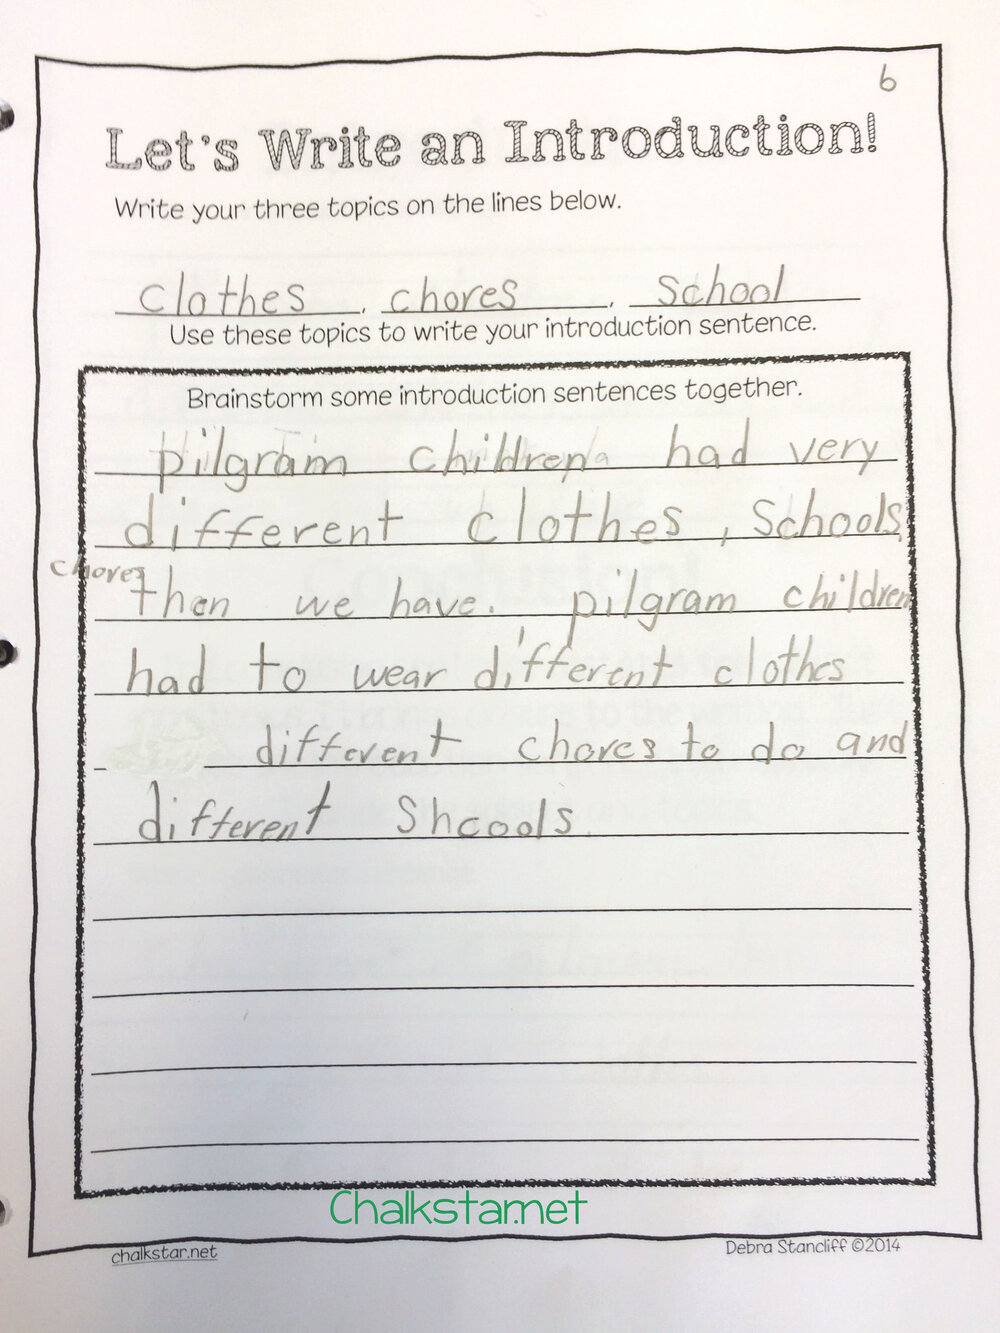 6
Let's Write an Introduction!
Write your three topics on the lines below.
clothes, chores, School
Use these topics to write your introduction sentence.
Brainstorm some introduction sentences together.
pilgram children had very
different clothes, Schools,
chores then we have. pilgram children
had to wear different clothes
different chores to do and
different Shcools.
Chalkstar.net
chalkstar.net
Debra Stancliff ©2014